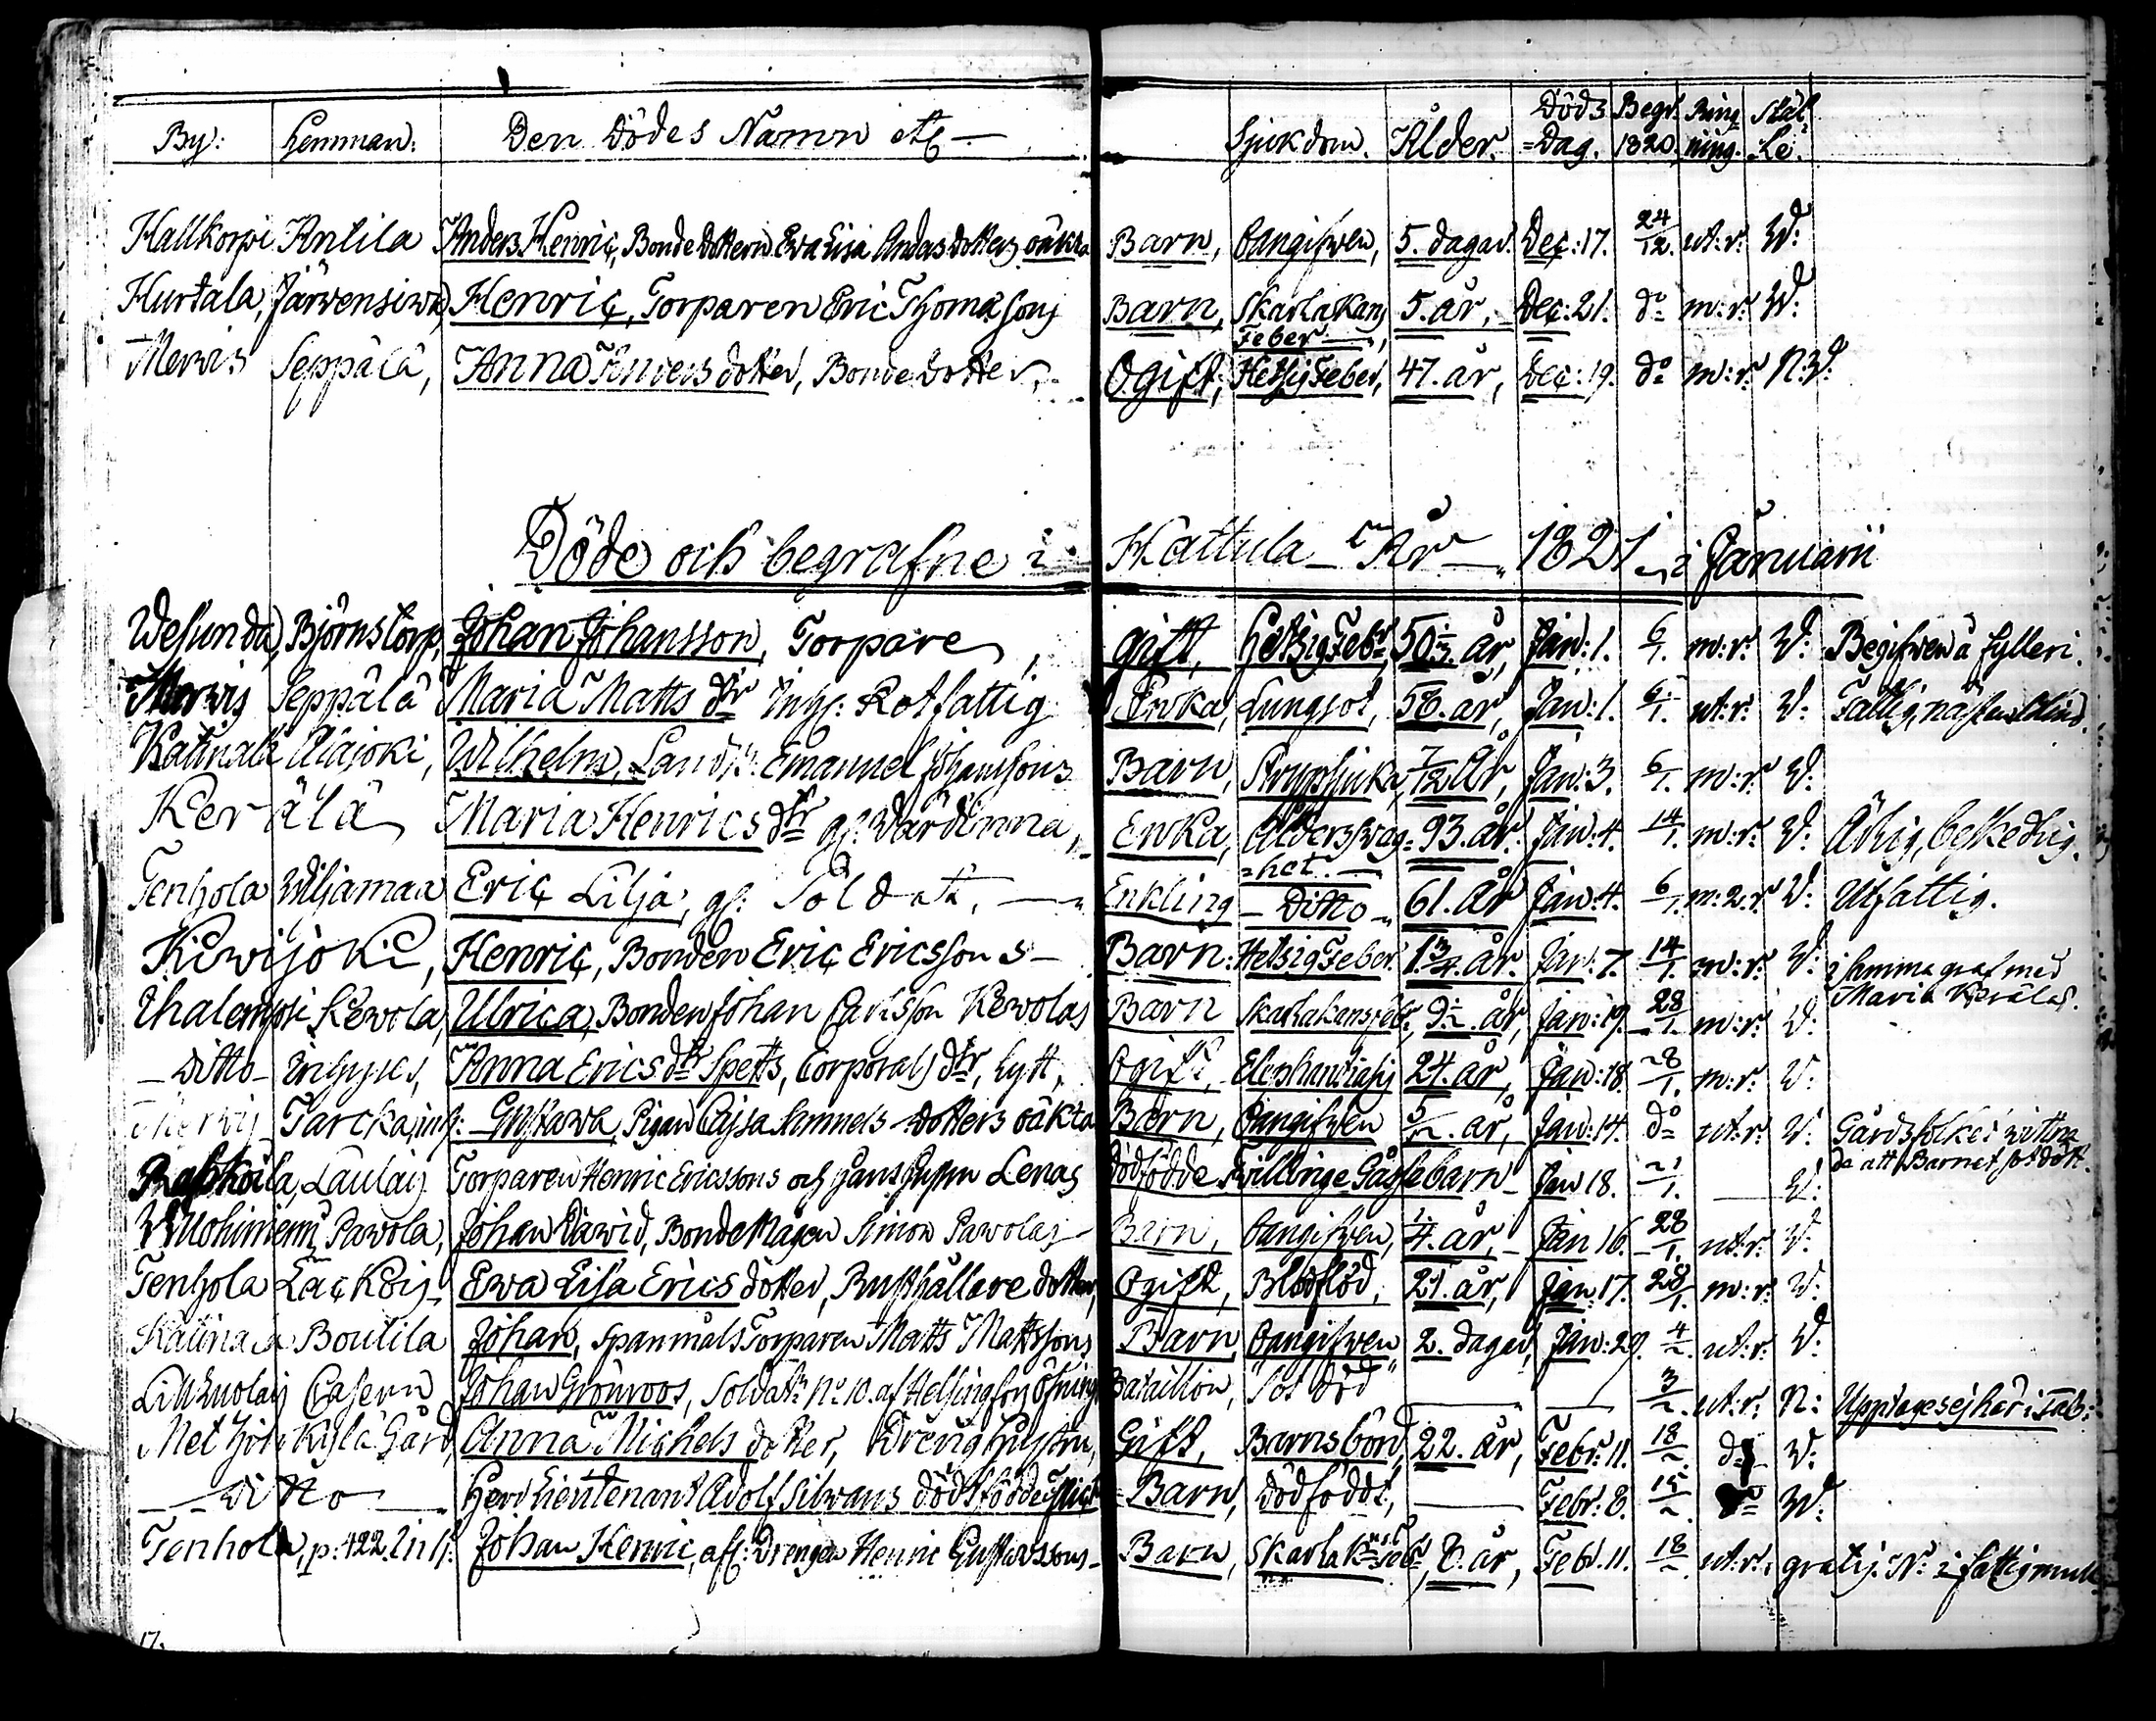 By: Hemman: Den Dödes Namn etc Sjukdom. Ålder. Döds =Dag. Begr. 1820. Ring ning. Stäl le.
Hallkorpi Antila Anders Henric, Bonde dottern Eva Lisa Anders dotters oäkta Barn, Oangifwen, 5. dagar. Dec: 17. 24/12. ut: r: W:
Hurtala, Järwensiwu Henric, Torparen Eric Thomassons Barn, Skarlakans Feber 5. år, Dec: 21. do m: r: W:
Merwis Seppälä, Anna Anders dotter, Bonde dotter, Ogift, Hetsig Feber, 47. år, Dec: 19. do m: r: N: W:
Döde och begrafne i Hattula År 1821 i Januarii
Wesunda, Björnstorp, Johan Johansson, Torpare gift, Hetsig Feb:r, 50 år, Jan: 1. 6/1. m: r: W: Begifwen å fylleri.
Merwis Seppälä Maria Matts dr Inhs: Rotfattig Enka, Lungsot, 58. år, Jan: 1. 6/1. ut: r: W: Fattig, nästan blind.
Katinala Alajoki, Wilhelm, Emanuel Johanssons Barn, Strypsjuka, 7/12 År, Jan: 3. 6/1. m: r: W:
Kerälä Maria Henrics dr gl: Wärdinna, Enka, Ålders swag= =het. 93. år. Jan: 4. 14/1. m: r: W: Ärlig, beskedlig.
Tenhola Wiljamaa Eric Lilja, gl: Soldat, Enkling Ditto 61. år Jan: 4. 6/1. m: 2. r: W: Utfattig.
Kiwijoki, Henric, Bonden Eric Ericssons Barn: Hetsig Feber. 1 3/4. år. Jan: 7. 14/1. m: r: W: i samma graf med Maria Kerälas.
Ihalempi Kewola, Ulrica, Bonden Johan Carlsson Kewolas Barn Skarlakansfebr, år, Jan: 19. 28/1. m: r: W:
Ditto Anna Erics dr Spetts, Corporals dr, Lytt, Ogift, Elephantiasis 24. år, Jan: 18. 28/1. m: r: W:
Merwis Tarcka, inh: Gustawa, Pigan Cajsa Samuels dotters oäkta Barn, Oangifwen år, Jan: 14. do ut: r: W: Gårdsfolket wittna de att Barnet sotdödt.
Rahkoila, Laulais Torparen Henric Ericssons och hans hustru Lenas dödfödde Twillinge Gåssebarn Jan 18. W:
Wuohiniemi, Pawola, Johan Dawid, Bonde Mågen Simon Pawolas Barn, Oangifwen, år, Jan 16. 28/1. ut: r: W:
Tenhola Läckois Ewa Lisa Erics dotter, Rusthållare dotter, Ogift, Blodflöd, 21. år, Jan: 17. 28/1. m: r: W:
Katinala Boutila Johan, Spanmåls Torparen Matts Mattssons Barn Oangifwen 2. dagar, Jan: 29. 4/2. ut: r: W:
Casern Johan Grönroos, Soldat No 10. af Helsingfors Bataillon, Sot död 3/2. ut: r: N: Upptages ej här i Tab:
Metzjö Kylä Gård, Anna Michels dotter, Dreng hustru, Gift, Barnsbörd, 22. år, Febr: 11. 18/2 do W:
Ditto Herr Lieutenant Adolf Silwans dödfödde Flick= Barn, Dödföddt, Febr: 8. 15/2 W:
Tenhola, p: 422. Inh: Johan Henric, afl: Drengen Henric Gustafssons Barn, Skarlak:ns Febr, 8. år, Feb: 11. 18/2 ut: r: gratis. N: i fattigmull
17.